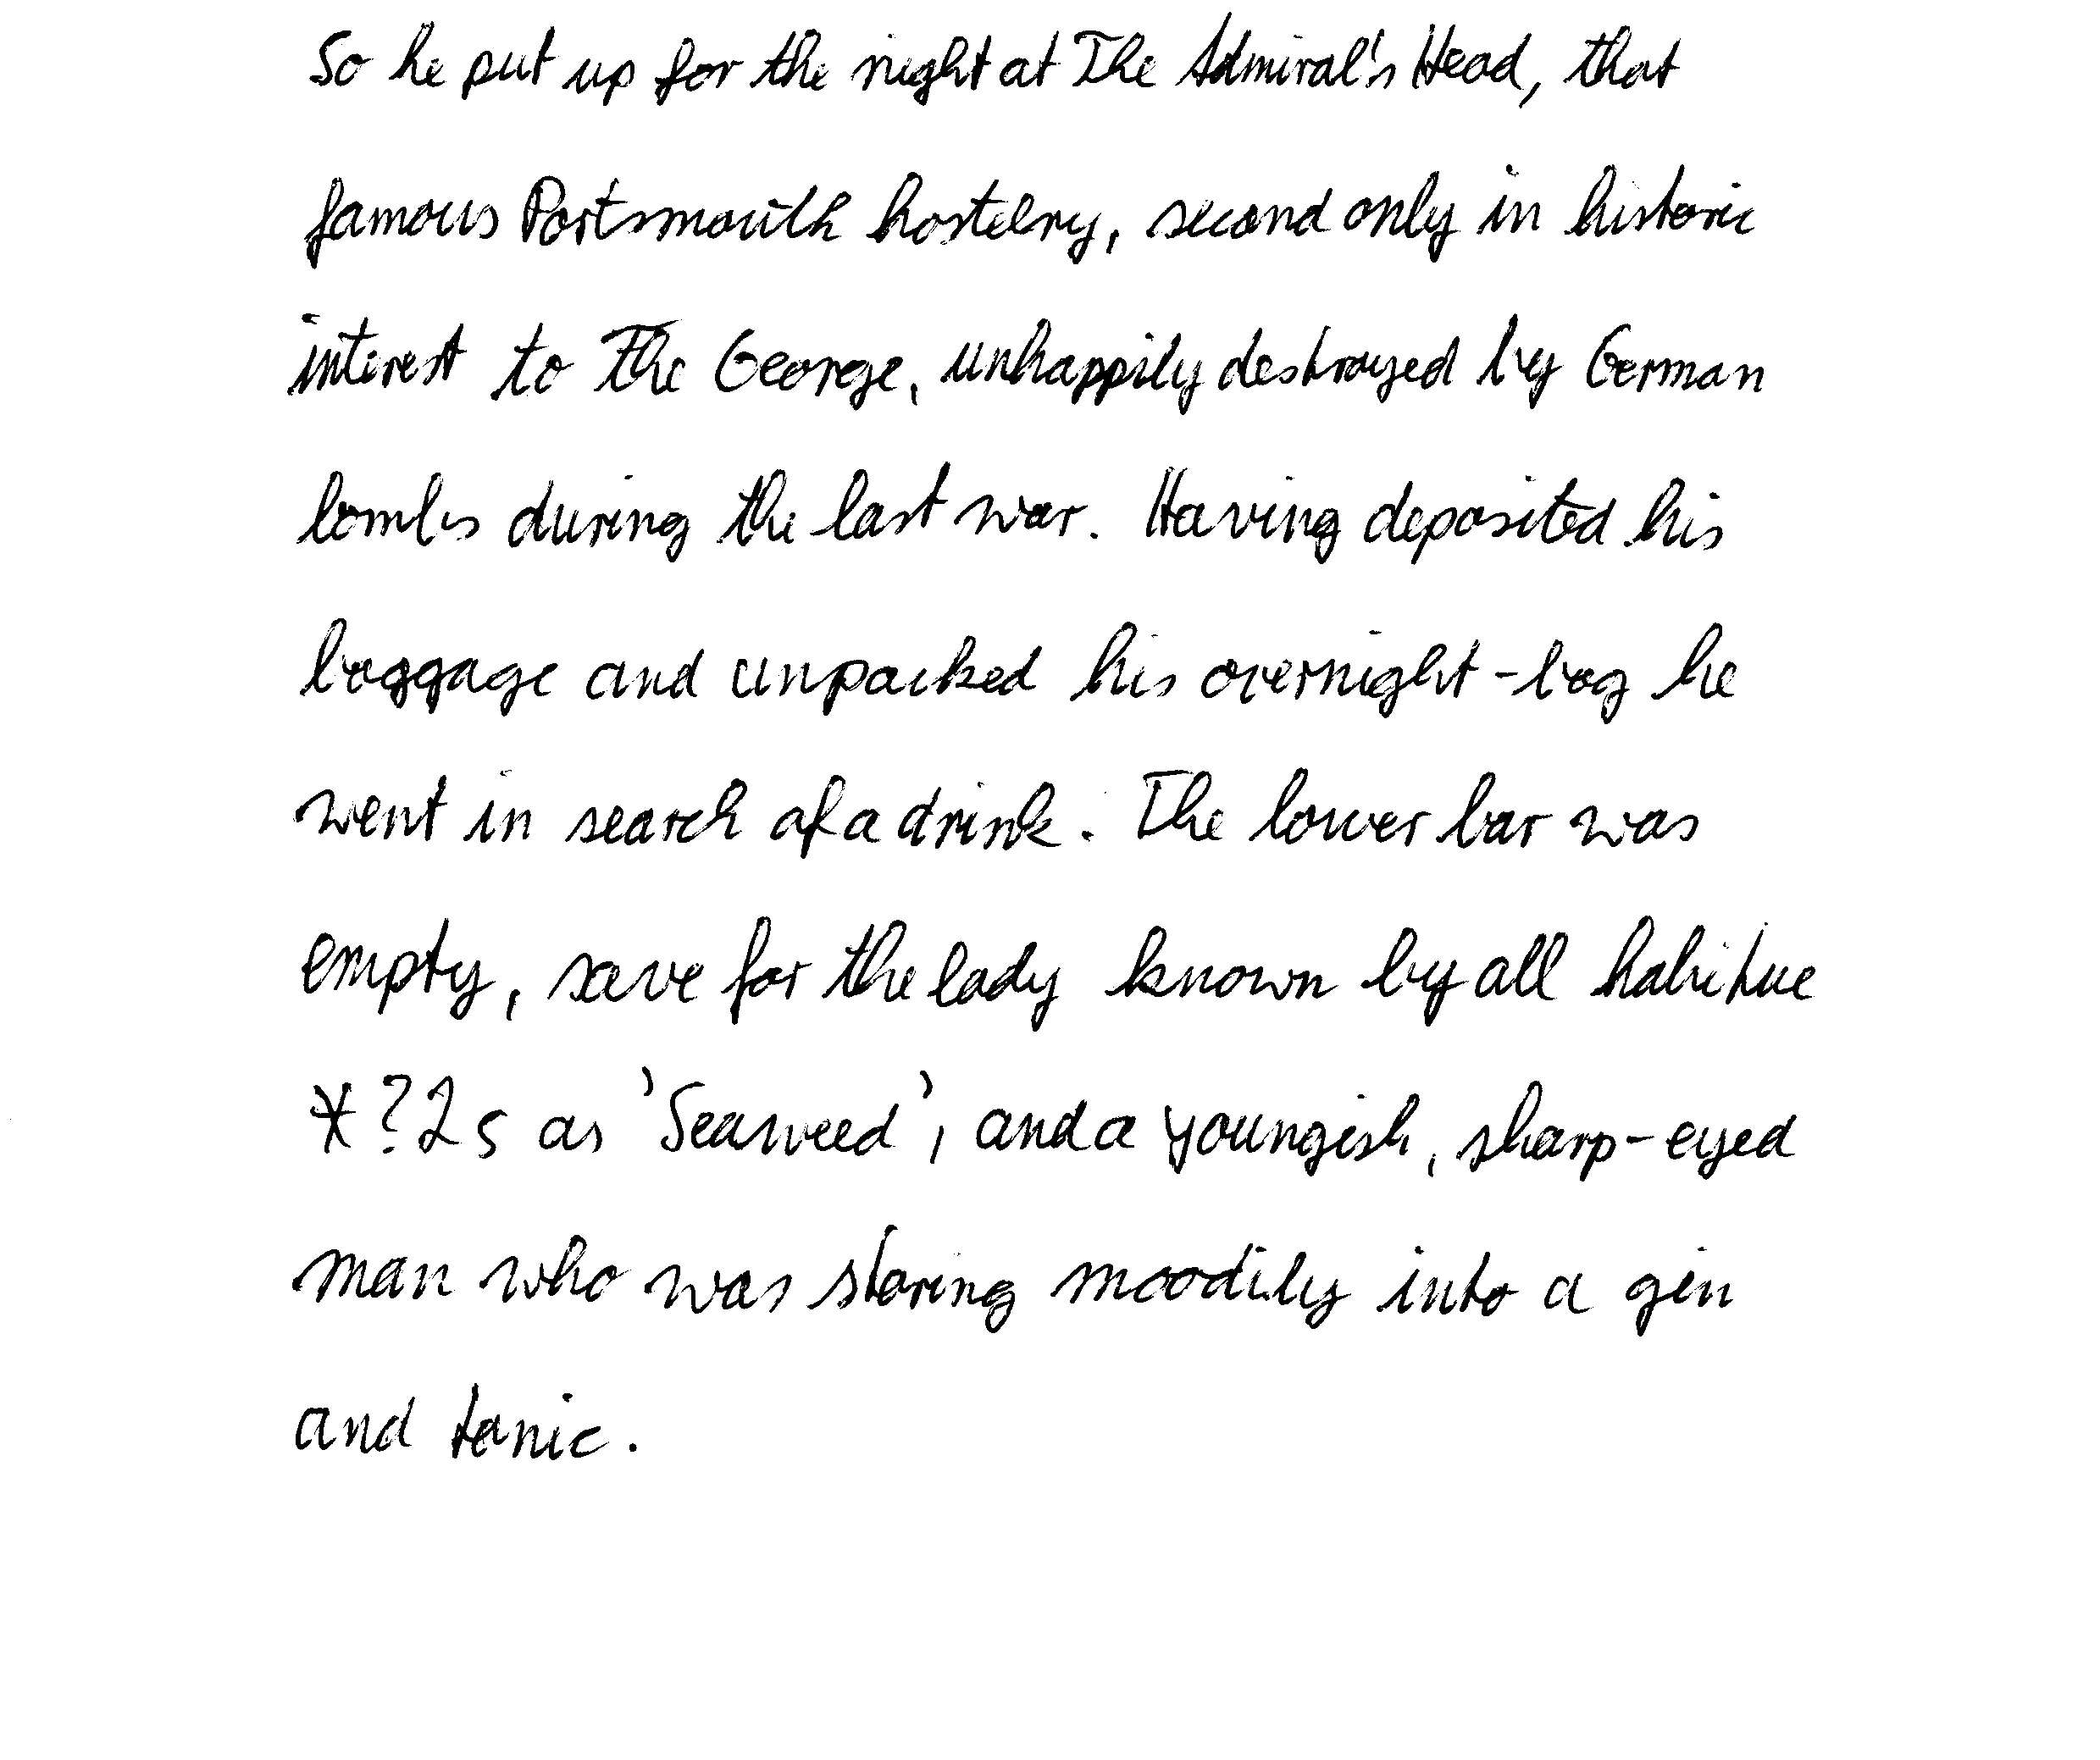 So he put up for the night at The Admiral's Head, that
famous Portsmouth hostelry, second only in historic
interest to The George, unhappily destroyed by German
bombs during the last war. Having deposited his
luggage and unpacked his overnight-bag he
went in search of a drink. The lower bar was
empty, save for the lady known by all habitue
*?2s as 'Seaweed', and a youngish, sharp-eyed
man who was staring moodily into a gin
and tonic.